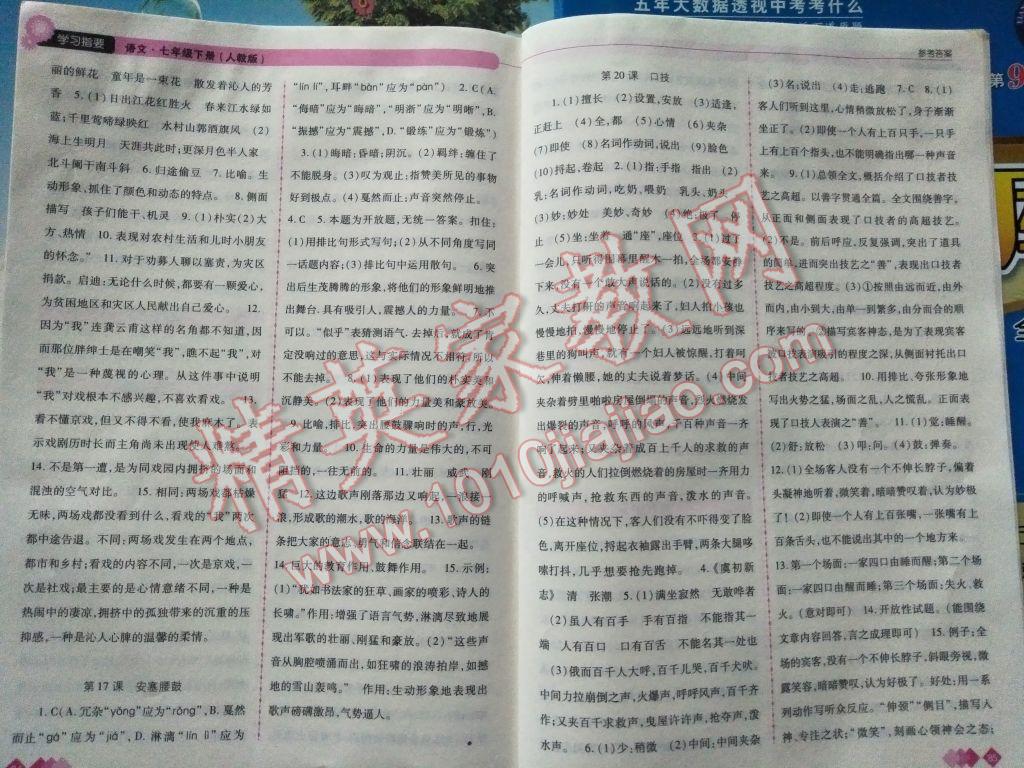 五年大数据透视中考考什么
学习指要
语文·七年级下册(人教版)
丽的鲜花 童年是一束花 散发着沁人的芳
香 5. (1)日出江花红胜火 春来江水绿如
蓝;千里莺啼绿映红 水村山郭酒旗风 (2)
海上生明月 天涯共此时;更深月色半人家
北斗阑干南斗斜 6. 归途偷豆 7. 比喻。生
动形象,抓住了颜色和动态的特点。 8. 侧面
描写 孩子们能干、机灵 9. (1)朴实(2)大
方、热情 10. 表现对农村生活和儿时小朋友
的怀念。” 11. 对于劝募人聊以塞责,为灾区
捐款。启迪:无论什么时候,都要有一颗爱心,
为贫困地区和灾区人民献出自己爱心。 12.
因为“我”连龚云甫这样的名角都不知道,因
而那位胖绅士是在嘲笑“我”,瞧不起“我”,对
“我”是一种蔑视的心理。从这件事中说明
“我”对戏根本不感兴趣,不喜欢看戏。 13.
看不懂京戏,但又不得不看,使我疾本了。表
示戏剧历时长而主角尚未出现使人难熬。
14. 不是第一遭,是为同戏园内拥挤的场面和
混浊的空气对比。 15. 相同;两场戏都枯燥
无味,两场戏都没看到什么,看戏的“我”两次
都中途告退。不同:两场戏发生在两个地点,
都市和乡村;看戏的内容不同,一次是京戏,一
次是社戏;最主要的是心情意绪不同,一种是
热闹中的凄凉,拥挤中的孤独带来的沉重的压
抑感,一种是沁人心脾的温馨的柔情。
第17课 安塞腰鼓
1. C(A. 冗杂“yǒng”应为“rǒng”,B. 戛然
而止“gá”应为“jiá”,D. 淋漓“lín lì”应为
“lín lí”,耳畔“bàn”应为“pàn”) 2. C(A.
“侮暗”应为“晦暗”,“明浙”应为“明晰”,B.
“振撼”应为“震撼”,D. “锻练”应为“锻炼”)
3. (1)晦暗:昏暗;阴沉。(2)羁绊:缠住了
不能脱身。(3)叹为观止:指赞美所见的事物
好到极点。(4)戛然而止:声音突然停止。
4. C 5. 本题为开放题,无统一答案。扣住:
(1)用排比句形式写句;(2)从不同角度写同
一话题内容;(3)排比句中运用散句。 6. 突
出后生茂腾腾的形象,将他们的形象鲜明地推
出舞台,具有吸引人,震撼人的力量。 7. 不
可以。“似乎”表猜测语气,去掉后,就成了肯定
没有时间的意思,这与实际情况不相符,所以
不能去掉。 8. (1)表现了他们的朴实美和
沉静美。(2)表现了他们的力量美和豪放美。
9. 比喻,排比,突出腰鼓骤响时的声,行,光
彩和力量。 10. 生命的力量是伟大的,不可
阻挡的,一往无前的。 11. 壮丽 威武 刚
猛 12. 这边歌声刚落那边又响起,一浪接一
浪,形成歌的潮水,歌的海洋。 13. 歌声的链
条把大家的意志,勇气和信念联结在一起。
14. 巨大的教育作用,鼓舞作用。 15. 示例:
(1)“犹如书法家的狂草,画家的喷彩,诗人的
长啸。”作用:增强了语言气势,淋漓尽致地展
现出军歌的壮丽、刚猛和豪放。(2)“这些声
音从胸腔喷涌而出,如狂啸的浪涛拍岸,如撼
地的雪山轰鸣。” 作用:生动形象地表现出
歌声磅礴激昂,气势逼人。
参考答案
第20课 口技
1. (1)擅长 (2)设置,安放 (3)适逢,
正赶上 (4)全,都 (5)心情 (6)夹杂
(7)即使 (8)名词作动词,说出 (9)脸色
(10)捋起,卷起 2. (1)指:手指 指出 (2)
乳:名词作动词,吃奶,喂奶 乳头,奶头
(3)妙:妙处 美妙,奇妙 (4)绝:极了 停
止 (5)坐:坐着 通“座”,座位 3. (1)过了
一会儿,只听得围幕里醒木一拍,全场都安静
下来,没有一个敢大声说话的。(2)没有过多
久,丈夫打鼾的声音响起来了,妇人拍小孩也
慢慢地拍,漫慢地停止了。(3)远远地听到深
巷里的狗叫声,就有一个妇人被惊醒,打着呵
欠,伸着懒腰,她的丈夫说着梦话。(4)中间
夹杂着劈里啪啦房屋倒塌的声音,烈火燃烧发
出爆裂的声音,呼呼的风声,千百种声音一齐
响了起来;又夹杂着成百上千人的求救的声
音,救火的人们拉倒燃烧着的房屋时一齐用力
的呼喊声,抢救东西的声音,泼水的声音。
(5)在这种情况下,客人们没有不吓得变了脸
色,离开座位,捋起衣袖露出手臂,两条大腿哆
嗦打抖,几乎想要抢先跑掉。 4. 《虞初新
志》 清 张潮 5. (1)满坐寂然 无敢哗者
(2)虽人有百手 手有百指 不能指其一
端 人有百口 口有百舌 不能名其一处也
(3)俄而百千人大呼,百千儿哭,百千犬吠。
中间力拉崩倒之声,火爆声,呼呼风声,百千齐
作;又夹百千求救声,曳屋许许声,抢夺声,泼
水声。 6. (1)少:稍微 (2)中间:中间夹杂
(3)名:说出 (4)走:逃跑 7. C 8. (1)
客人们听到这里,心情稍微放松了,身子渐渐
坐正了。(2)即使一个人有上百只手,一只手
上有上百个指头,也不能明确指出哪一种声音
来。 9. (1)总领全文,概括介绍了口技者技
艺之高超。以善字贯通全篇。全文围绕善字,
从正面和侧面表现了口技者的高超技艺。
(2)不是。前后呼应,反复强调,突出了道具
的简单,进而突出技艺之“善”,表现出口技者
技艺之高超。(3)①按照由远而近,由外
而内,由小到大,由单一到繁多,由分而合的顺
序来写的 ②描写宾客神态,是为了表现宾客
对口技表演吸引的程度之深,从侧面衬托出口
技者技艺之高超。 10. 用排比、夸张形象地
写出火势之猛,场面之乱,人之慌乱。正面表
现了口技人表演之“善”。 11. (1)觉;睡醒。
(2)舒;放松 (3)叩:问 (4)鼓:弹奏。
12. (1)全场客人没有一个不伸长脖子,偏着
头凝神地听着,微笑着,暗暗赞叹着,认为妙极
了! (2)即使一个人有上百张嘴,一张嘴有上
百条舌头,也不能说出其中的一个地方来。
13. 第一个场面:一家四口由睡而醒;第二个场
面:一家四口由醒而睡;第三个场面:失火、救
火。(意对即可) 14. 开放性试题。(能围绕
文章内容回答,言之成理即可) 15. 例子:全
场的宾客,没有一个不伸长脖子,斜眼旁视,微
露笑容,暗暗赞叹,认为好极了。好处:用一系
列动作写听众反应。“伸颈”“侧目”,描写人
神、专注之状;“微笑”,刻画心领神会之态;
85
精英家教网
www.1010jiajiao.com
第9